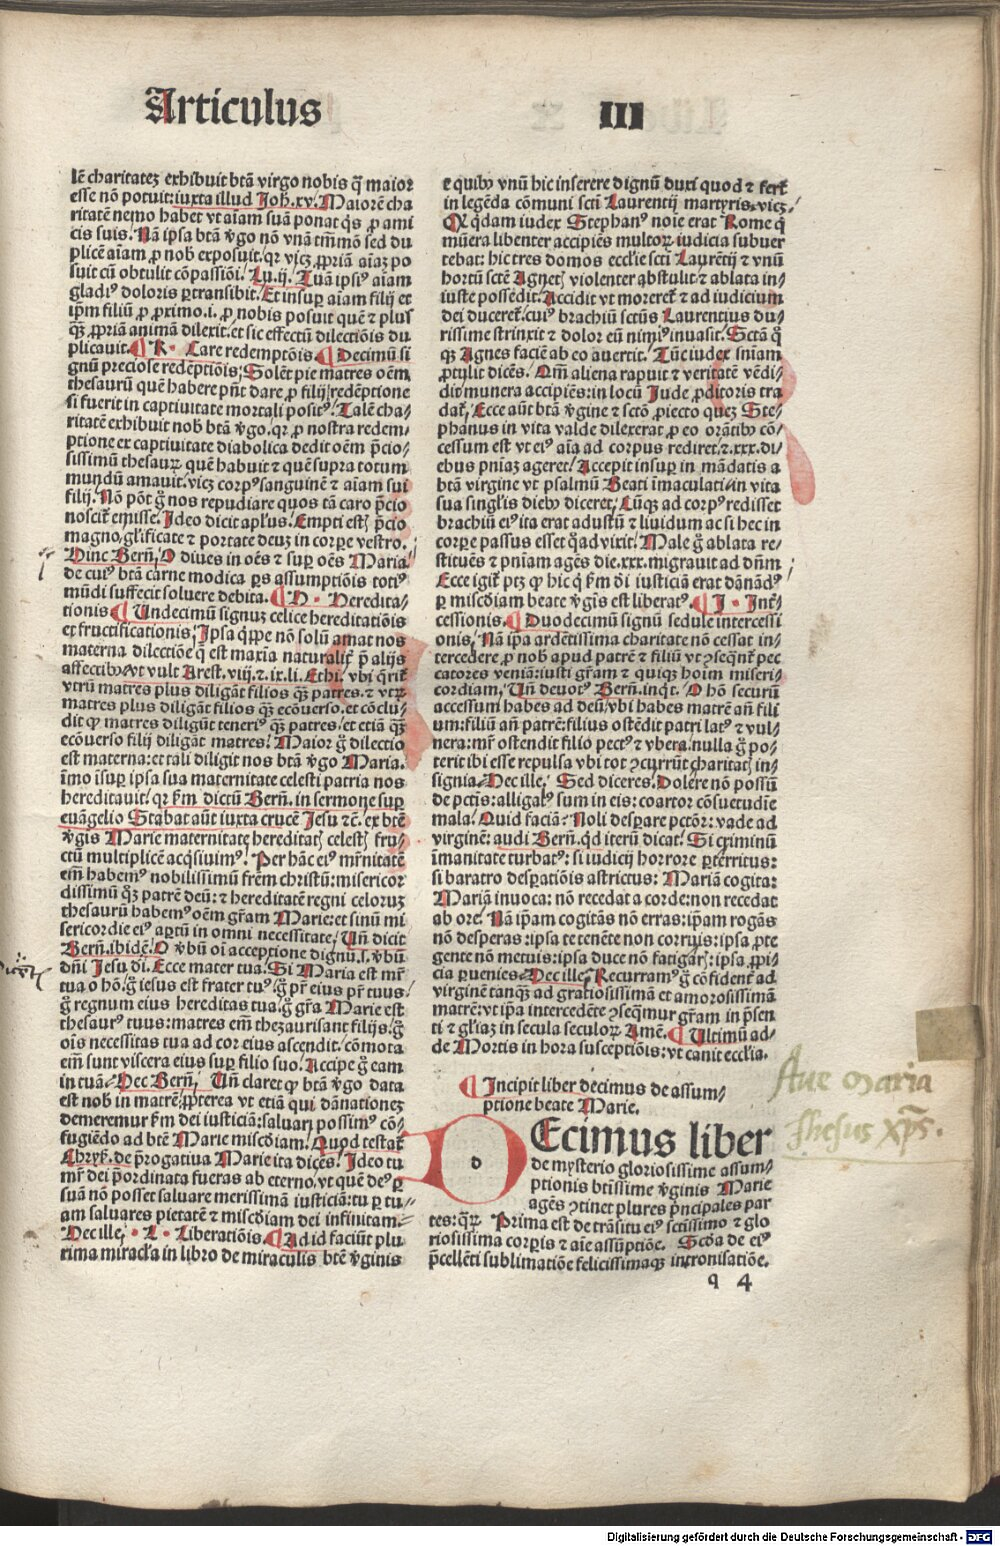 Articulus III
lē charitatez exhibuit btā virgo nobis q̄ maior
esse nō potuit: iuxta illud Joh̄. xv. Maiorē cha
ritatē nemo habet vt aīam suā ponat q̄s ꝓ ami
cis suis. Nā ipsa btā v̄go nō vnā tm̄mō sed du
plicē aīam ꝓ nob̄ exposuit. qꝛ vicz ꝓpriā aīaz po
suit cū obtulit cōpassiōi. Lu. ij. Tuā ipsiꝰ aīam
gladiꝰ doloris ꝑtransibit. Et insuꝑ aīam filij et
ip̄m filiū ꝓ ꝓximo .i. ꝓ nobis posuit quē et plus
qꝫ ꝓpriā animā dilexit. et sic effectū dilectiōis du
plicauit. ¶ K. Care redemptōis. ¶ Decimū si
gnū preciose redēptiōis. Solēt pie matres oēm
thesaurū quē habere pn̄t dare ꝓ filij redēptione
si fuerit in captiuitate mortali positꝰ. Talē cha/
ritatē exhibuit nob̄ btā v̄go. qꝛ ꝓ nostra redem/
ptione ex captiuitate diabolica dedit oēm p̄cio/
sissimū thesauꝝ quē habuit et quē supra totum
mundū amauit. vicz corpꝰ sanguinē et aīam sui
filij. Nō pōt g̊ nos repudiare quos tā caro p̄cio
noscit᷑ emisse. Ideo dicit apl̄us. Empti estꝭ p̄cio
magno, gl̄ificate et portate deuz in corpe vestro.
Hinc Bern̄. O diues in oēs et suꝑ oēs Maria
de cuiꝰ btā carne modica ꝑs assumptiōis totiꝰ
mūdi suffecit soluere debita. ¶ H. Heredita/
tionis ¶ Undecimū signuz celice hereditatiōis
et fructificationis. Ipsa q̄ppe nō solū amat nos
materna dilectiōe q̄ est maxīa naturalit᷑ p̄ alijs
affectibꝰ vt vult Arest. viij. et. ix. li. Ethi. vbi q̄rit᷑
vtrū matres plus diligāt filios qꝫ patres. et vtꝝ
matres plus diligāt filios qꝫ ecōuerso. et cōclu/
dit ꝙ matres diligūt teneriꝰ qꝫ patres. et etiā qꝫ
ecōuerso filij diligāt matres. Maior g̊ dilectio
est materna: et tali diligit nos btā v̄go Maria.
īmo īsuꝑ ipsa sua maternitate celesti patria nos
hereditauit. qꝛ ẜm dictū Bern̄. in sermone suꝑ
euāgelio Stabat aūt iuxta crucē Jesu ⁊c̄. ex btē
v̄gis Marie maternitate hereditatꝭ celestꝭ fru/
ctū multiplicē acq̄siuimꝰ. Per hāc eiꝰ mr̄nitatē
em̄ habemꝰ nobilissimū fr̄em christū: misericor
dissimū qꝫ patrē deū: et hereditatē regni celoruz
thesaurū habemꝰ oēm gr̄am Marie: et sinū mi
sericordie eiꝰ aꝑtū in omni necessitate. Un̄ dicit
Bern̄. ibidē. O v̄bū oī acceptione dignū. s. v̄bū
dn̄i Jesu di. Ecce mater tua. Si Maria est mr̄
tua o hō. g̊ iesus est frater tuꝰ. g̊ pr̄ eius pr̄ tuus.
g̊ regnum eius hereditas tua. g̊ gr̄a Marie est
thesaurꝰ tuus: matres em̄ thezaurisant filijs. g̊
oīs necessitas tua ad cor eius ascendit. cōmota
em̄ sunt viscera eius suꝑ filio suo. Accipe g̊ eam
in tuā. Hec Bern̄. Un̄ claret ꝙ btā v̄go data
est nob̄ in matrē. ꝓpterea vt etiā qui dānationez
demeremur ẜm dei iusticiā: saluari possimꝰ cō/
fugiēdo ad btē Marie misc̄diam. Quod testat᷑
Chryẜ. de p̄rogatiua Marie ita dicēs. Ideo tu
mr̄ dei p̄ordinata fueras ab eterno. vt quē deꝰ ꝑ
suā nō posset saluare merissimā iusticiā: tu ꝑ tu/
am saluares pietatē et misc̄diam dei infinitam.
Hec ille. L. Liberatiōis. ¶ Ad id faciūt plu
rima miracl̄a in libro de miraculis btē v̄ginis
e quibꝰ vnū hic inserere dignū duxi quod et fert᷑
in legēda cōmuni sctī Laurentij martyris. vicz.
Qꝙ q̄dam iudex Stephanꝰ noīe erat Rome q̄
mūera libenter accipiēs multoꝝ iudicia subuer
tebat: hic tres domos eccl̄ie sctī Laurētij et vnū
hortū sctē Agnetꝭ violenter abstulit. et ablata in/
iuste possēdit. Accidit vt moreret᷑ et ad iudicium
dei duceret᷑. cuiꝰ brachiū sctūs Laurentius du/
rissime strinxit et dolor eū nimiꝰ inuasit. Sctā q̊
qꝫ Agnes faciē ab eo auertit. Tūc iudex sn̄iam
ꝓtulit dicēs. Qm̄ aliena rapuit et veritatē vēdi/
dit munera accipiēs: in locū Jude ꝓditoris tra
dat᷑. Ecce aūt btā v̄gine et sctō ꝓiecto quez Ste/
phanus in vita valde dilexerat ꝓ eo orātibꝰ cō/
cessum est vt eiꝰ aīa ad corpus rediret. et. xxx. di/
ebus pn̄iaz ageret. Accepit insuꝑ in mādatis a
btā virgine vt psalmū Beati īmaculati in vita
sua singlis diebꝰ diceret. Cūqꝫ ad corpꝰ redisset
brachiū eiꝰ ita erat adustū et liuidum ac si hec in
corꝑe passus esset q̊ad vixit. Male g̊ ablata re/
stituēs et pn̄iam agēs die. xxx. migrauit ad dn̄m
Ecce igit᷑ ptꝫ ꝙ hic q̄ ẜm di iusticiā erat dānādꝰ
ꝑ misc̄diam beate v̄gīs est liberatꝰ. ¶ I. Int᷑
cessionis. ¶ Duodecimū signū sedule intercessi
onis. Nā ip̄a ardētissima charitate nō cessat in/
tercedere ꝓ nob̄ apud patrē et filiū vt ꝯseq̄nt᷑ pec
catores veniā: iusti gr̄am et quiqꝫ hoīm miseri/
cordiam. Un̄ deuotꝰ Bern̄. inq̄t. O hō securū
accessum habes ad deū. vbi habes matrē an̄ fili
um: filiū an̄ patrē: filius ostēdit patri latꝰ et vul/
nera: mr̄ ostendit filio pectꝰ et vbera. nulla g̊ po/
terit ibi esse repulsa vbi tot ꝯcurrūt charitatꝭ in/
signia. Hec ille. Sed diceres. Dolere nō possū
de pctīs: alligatꝰ sum in eis: coartor cōsuetudīe
mala. Quid faciā. Noli desꝑare pctōr: vade ad
virginē: audi Bern̄. qd̄ iterū dicat. Si criminū
īmanitate turbatꝰ: si iudicij horrore ꝑterritus:
si baratro desꝑatiōis astrictus: Mariā cogita:
Mariā inuoca: nō recedat a corde: non recedat
ab ore. Nā ip̄am cogitās nō erras: ip̄am rogās
nō desperas: ipsa te tenēte non corruis: ipsa ꝓte
gente nō metuis: ipsa duce nō fatigaꝭ: ipsa ꝓpi/
cia ꝑuenies. Hec ille. Recurramꝰ g̊ cōfident᷑ ad
virginē tanqꝫ ad gratiosissimā et amorosissimā
matrē: vt ip̄a intercedēte ꝯseqmur gr̄am in p̄sen
ti et gl̄iaꝫ in secula seculoꝝ Amē. ¶ Ultimū ad/
de Mortis in hora susceptiōis: vt canit eccl̄ia.
¶ Incipit liber decimus de assum/
ptione beate Marie.
DEcimus liber
de mysterio gloriosissime assum/
ptionis btīssime v̄ginis Marie
agēs ꝯtinet plures p̄ncipales par
tes: qꝝ. Prima est de trāsitu eiꝰ sctīssimo et glo
riosissima corꝑis et aīe assūptiōe. Scd̄a de eiꝰ
p̄cellēti sublimatiōe felicissimaqꝫ intronisatiōe.
q 4
Aue Maria
Jhesus xp̄s.
Digitalisierung gefördert durch die Deutsche Forschungsgemeinschaft - DFG